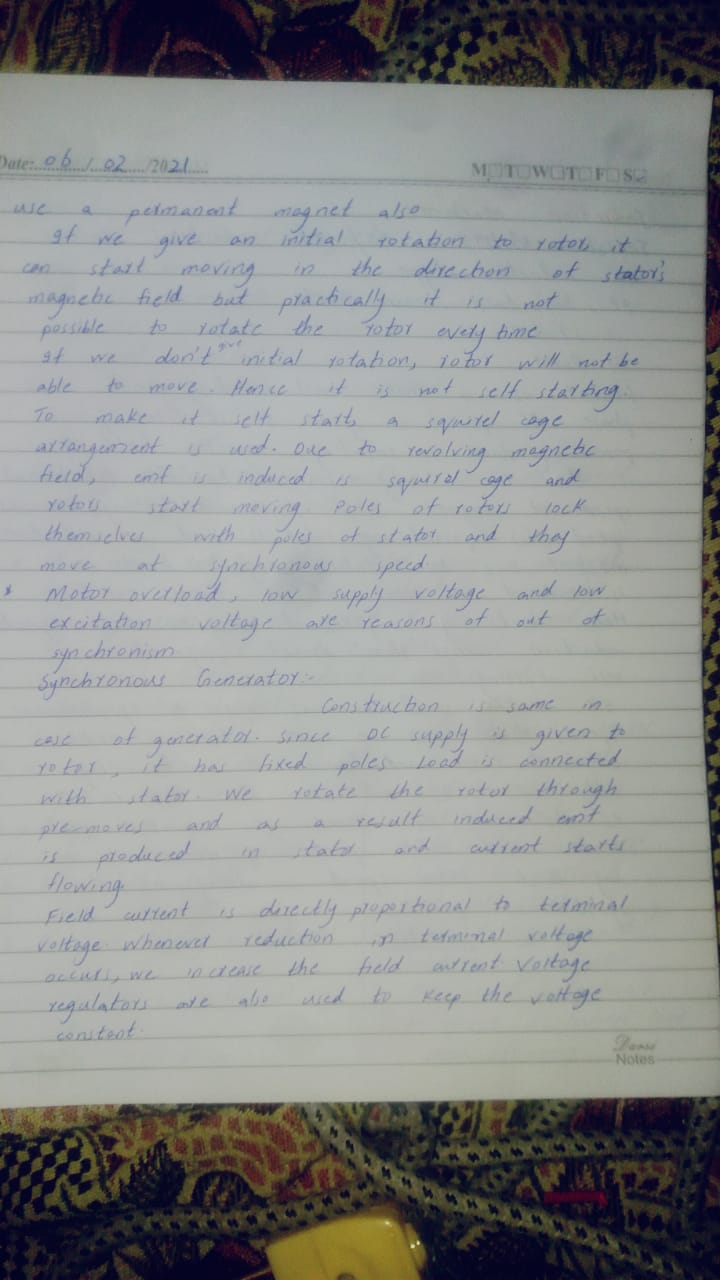 Date: 06 / 02 /2021
M T W T F S
use a permanent magnet also
If we give an initial rotation to rotor, it
can start moving in the direction of stator's
magnetic field but practically it is not
possible to rotate the rotor every time
If we don't give initial rotation, rotor will not be
able to move. Hence it is not self starting.
To make it self start, a squirrel cage
arrangement is used. Due to revolving magnetic
field, emf is induced is squirrel cage and
rotors start moving Poles of rotors lock
themselves with poles of stator and they
move at synchronous speed
* Motor overload, low supply voltage and low
excitation voltage are reasons of out of
synchronism
Synchronous Generator:-
Construction is same in
case of generator. Since DC supply is given to
rotor, it has fixed poles Load is connected
with stator. We rotate the rotor through
pre-moves and as a result induced emf
is produced in stator and current starts
flowing.
Field current is directly proportional to terminal
voltage. Whenever reduction in terminal voltage
occurs, we increase the field current. Voltage
regulators are also used to keep the voltage
constant.
Notes